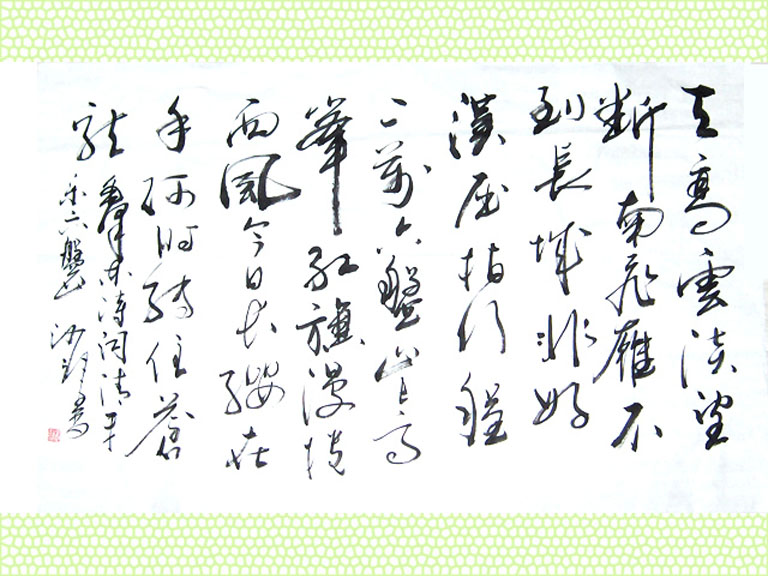 天高雲淡望
斷南飛雁不
到長城非好
漢屈指行程
二萬六盤山上高
峯红旗漫捲
西風今日长缨在
手何时缚住蒼
龙 毛澤东诗词清平
乐六盤山 沙 書